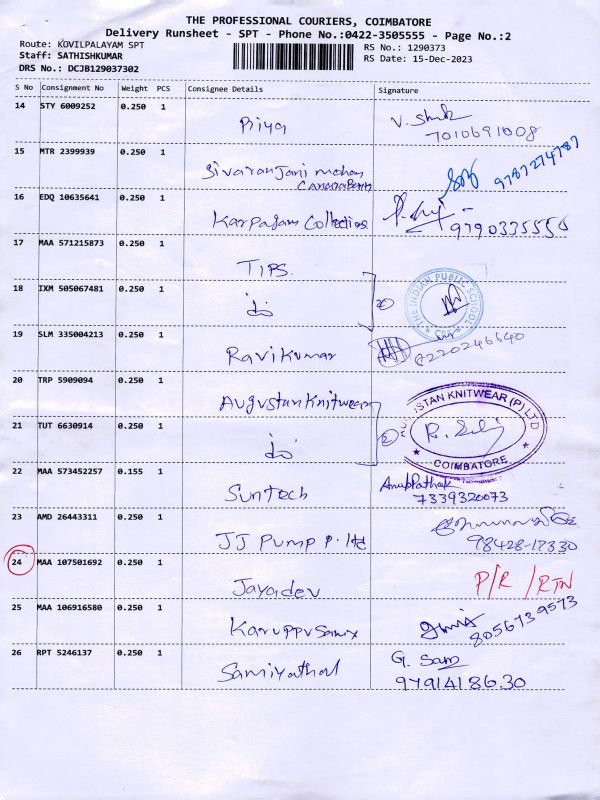 THE PROFESSIONAL COURIERS, COIMBATORE
Delivery Runsheet - SPT - Phone No.:0422-3505555 - Page No.:2
Route: KOVILPALAYAM SPT
RS No.: 1290373
Staff: SATHISHKUMAR
RS Date: 15-Dec-2023
DRS No.: DCJB129037302
S No Consignment No Weight PCS Consignee Details Signature
14 STY 6009252 0.250 1
Priya V. 7010691008
15 MTR 2399939 0.250 1
Sivaranjani mohan
Canara Bank 9787274787
16 EDQ 10635641 0.250 1
Karpagam Collections 9790335556
17 MAA 571215873 0.250 1
TIPS.
18 IXM 505067481 0.250 1
do 2 THE INDIAN PUBLIC SCHOOL
19 SLM 335004213 0.250 1
Ravikumar 7220246640
20 TRP 5909094 0.250 1
Augustan Knitwear
21 TUT 6630914 0.250 1
do 2 AUGUSTAN KNITWEAR (P) LTD
COIMBATORE
22 MAA 573452257 0.155 1
Suntech Anup Pathak
7339320073
23 AMD 26443311 0.250 1
JJ Pump P. ltd 98428-17330
24 MAA 107501692 0.250 1
Jayadev P/R / RTN
25 MAA 106916580 0.250 1
Karuppusamy 8056739573
26 RPT 5246137 0.250 1
Samiyathal G. Sam
9791418630